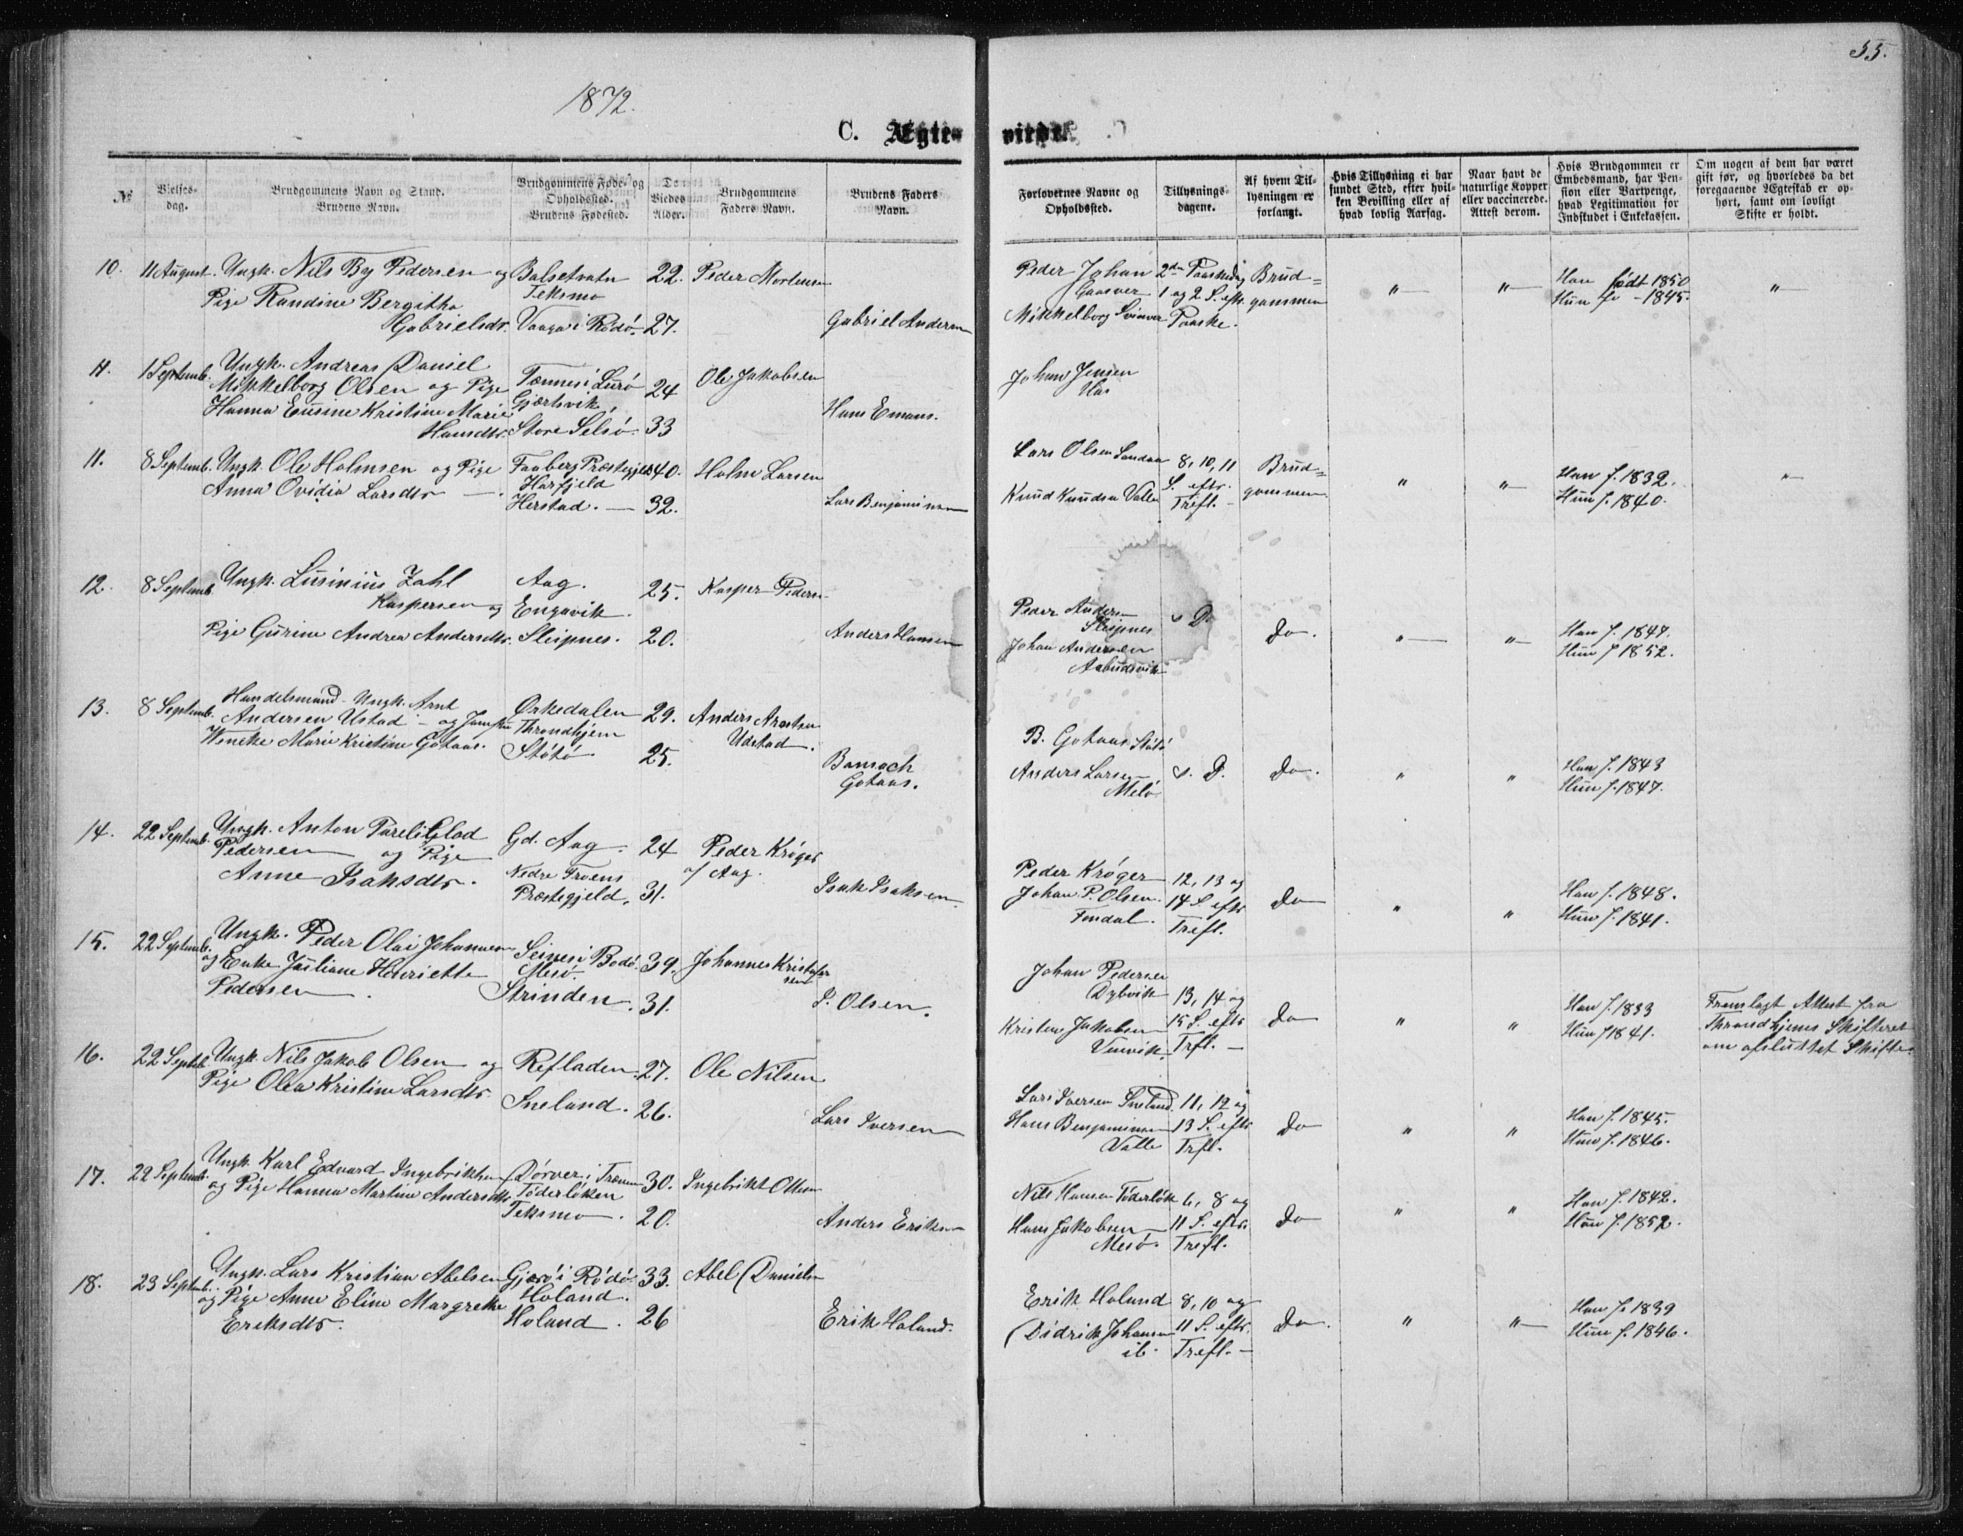 55.
1872.
C. Ægte-viede.
№
Vielses-dag.
Brudgommens Navn og Stand.
Brudens Navn.
Brudgommens Føde- og Opholdssted.
Brudens Fødested.
De Viedes Alder.
Brudgommens Faders Navn.
Brudens Faders Navn.
Forlovernes Navne og Opholdssted.
Tillysnings-dagene.
Af hvem Tillysningen er forlangt.
Hvis Tillysning ei har fundet Sted, efter hvilken Bevilling eller af hvad lovlig Aarsag.
Naar havt de naturlige Kopper eller vaccinerede. Attest derom.
Hvis Brudgommen er Embedsmand, har Pension eller Vartpenge, hvad Legitimation for Indskudet i Enkekassen.
Om nogen af dem har været gift før, og hvorledes da det foregaaende Ægteskab er ophørt, samt om lovligt Skifte er holdt.
10. 11 August. Ungk. Nils By Pedersen og Balsetvatn 22. Peder Mortensen
Teksmo
Pige Randine Bergitha
Gabrielsdr. Vaaga i Rødø. 27. Gabriel Andersen
Peder Johan Gaasvær 2den Paaskedag 1 og 2 S. eftr. Brudgommen " " Han født 1850 "
Mikkelborg Svinvær Paaske. Hun fo - 1845.
11. 1 Septemb. Ungk. Andreas Daniel
Mikkelborg Olsen og Pige Tønnes i Lurø 24 Ole Jakobsen
Gjærtsvik,
Hanna Eusine Kristine Marie
Hansdtr. Store Selsø. 33 Hans Emans.
Johan Jensen
Has
11. 8 Septemb. Ungk. Ole Holmsen og Pige Faaberg Præstegjeld 40. Holm Larsen
Harfjeld
Anna Ovidia Larsdtr Herstad. 32. Lars Benjaminsen
Lars Olsen Sandaa 8, 10, 11 Brud-
Knud Knudsen Valle S. eftr. Trefl. gommen " " Han f. 1832.
Hun f. 1840. "
12. 8 Septemb. Ungk. Lusinius Zahl Aag. 25. Kasper Pedersen
Kaspersen og Engavik.
Pige Gurine Andrea Andersdtr. Sleipnes. 20. Anders Hansen
Peder Andersen
Sleipnes s. D. Do. " " Han f. 1847.
Johan Andersen Hun f 1852.
Aabudsvik
13. 8 Septemb. Handelsmand Ungk. Arnt Ørkedalen 29. Anders Arntsen
Andersen Ustad og Jomfru Throndhjem Udstad.
Wencke Marie Kristine Gotaas. Støtø 25. Gotaas.
B. Gotaas Støtø
Anders Larsen s. D. Do. " " Han f. 1843
Melø Hun f. 1847.
14. 22 Septemb. Ungk. Anton Parelig Glad Gd. Aag. 24 Peder Krøger
Pedersen og Pige af Aag.
Anne Isaksdtr. Nedre Præstegjeld, 31. Isak Isaksen.
Peder Krøger 12, 13 og
Johan P. Olsen 14 S. eftr Do " " Han f. 1848.
Fondal. Trefl. Hun f. 1841.
15. 22 Septemb. Ungk. Peder Olai Johannesen Seines i Bodø. 39. Johannes Kristofersen
og Enke Juliane Henriette Mesø.
Pedersen. Strinden. 31. P. Olsen.
Johan Pedersen
Dybvik 13, 14 og
Kristen Jakobsen 15 S. eftr Do " " Han f. 1833
Vinvik Trfl. Hun f 1841.
Fremlagt Attest fra
Throndhjems Skifteret
om afsluttet Skifte.
16. 22 Septbr Ungk. Nils Jakob Olsen og Refladen. 27. Ole Nilsen
Pige Olea Kristine Larsdtr Sneland. 26. Lars Iversen
Lars Iversen Sneland. 11, 12 og
Hans Benjaminsen 13 S. eftr Do " " Han f. 1845.
Valle Trfl. Hun f. 1846.
17. 22 Septemb. Ungk. Karl Edvard Ingebrigtsen Dørvær i Trænen 30. Ingebrikt Olsen
og Pige Hanna Martine Andersdtr. Tøderløken
Teksmo. 20. Anders Eriksen
Nils Hansen Tøderløk 6, 8 og
Hans Jakobsen 11 S. eftr. Do " " Han f. 1842.
Mesø. Trefl. Hun f. 1852.
18. 23 Septemb. Ungk. Lars Kristian Abelsen Gjærø i Rødø 33. Abel Danielsen
og Pige Anne Eline Margrethe Holand.
Eriksdtr. Holand. 26 Erik Holand.
Erik Holand 8, 10 og
Didrik Johansen 11 S. eftr. Do. " " Han f. 1839
ib. Trefl. Hun f. 1846.